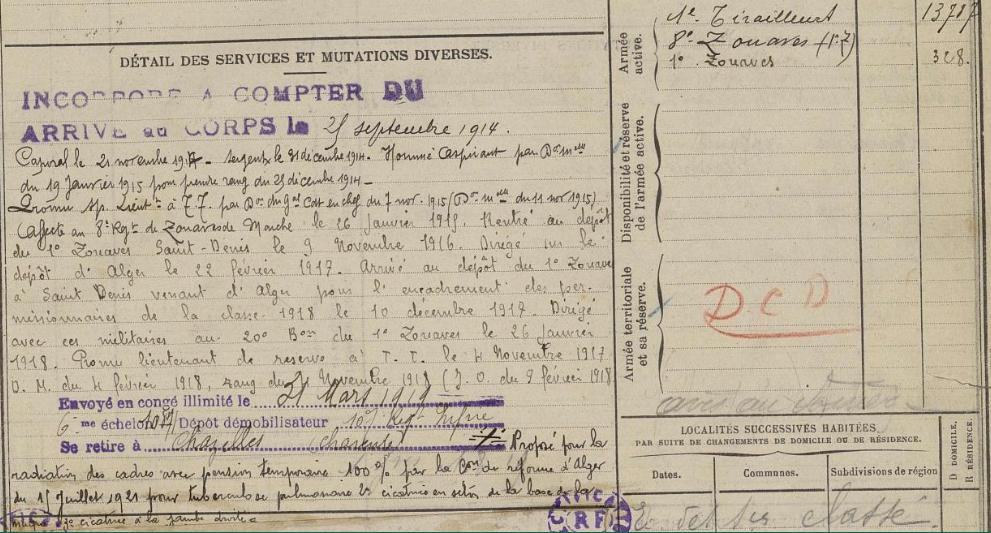 DÉTAIL DES SERVICES ET MUTATIONS DIVERSES.
INCORPORE A COMPTER DU
ARRIVE au CORPS le 25 septembre 1914.
Caporal le 21 novembre 1914 - Sergent le 21 décembre 1914 - Nommé Aspirant par Don melle
du 19 Janvier 1915 pour prendre rang du 25 décembre 1914 -
Promu Sp. Lieutt à T.T. par Don du Gal Cdt en chef du 7 nov. 1915 (Don melle du 11 nov 1915)
affecté au 8e Regt de Zouaves de Marche le 26 Janvier 1915. Rentré au dépôt
du 1o Zouaves Saint-Denis le 9 Novembre 1916. Dirigé sur le
dépôt d'Alger le 22 février 1917. Arrivé au dépôt du 1o Zouave
à Saint Denis venant d'Alger pour l'encadrement des per-
missionnaires de la classe 1918 le 10 décembre 1917. Dirigé
avec ces militaires au 20o Bon du 1o Zouaves le 26 Janvier
1918. Promu lieutenant de réserve à T.T. le 4 Novembre 1917
D.M. du 4 février 1918, rang du Novembre (J.O. du 9 février 1918
Envoyé en congé illimité le 21 Mars 1919
6 me échelon Dépôt démobilisateur 107 Reg Infrie
Se retire à Chazelles Charente
Proposé pour la
radiation des cadres avec pension temporaire 100% par la Con de réforme d'Alger
du 15 Juillet 1921 pour tuberculose pulmonaire 2o cicatrice en séton de la base de la
3o cicatrice à la jambe droite.
RF
Armée active.
1e Tirailleurs 13787
8e Zouaves
1o Zouaves 328.
Disponibilité et réserve de l'armée active.
Armée territoriale et sa réserve.
DCD
LOCALITÉS SUCCESSIVES HABITÉES
PAR SUITE DE CHANGEMENTS DE DOMICILE OU DE RÉSIDENCE.
Dates. Communes. Subdivisions de région
D DOMICILE,
R RÉSIDENCE.
classé